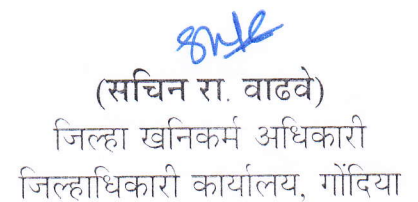 (सचिन रा. वाढवे)
जिल्हा खनिकर्म अधिकारी
जिल्हाधिकारी कार्यालय, गोंदिया